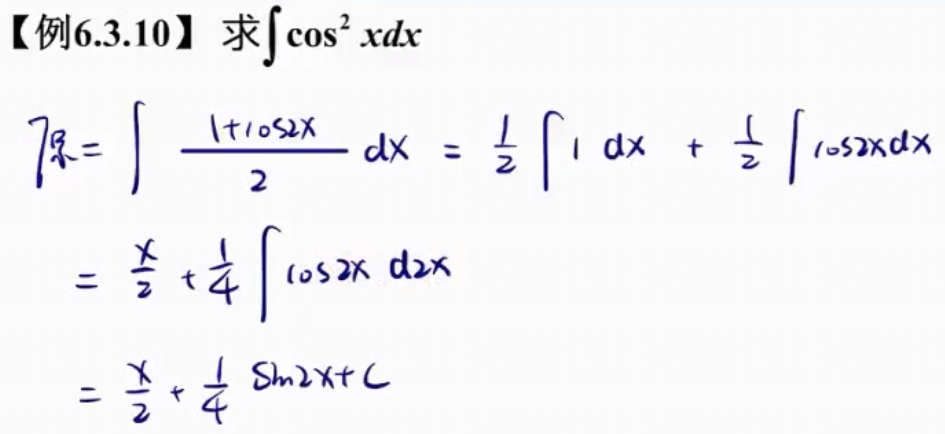 【例6.3.10】 求∫cos² xdx
原 = ∫ (1+cos2x)/2 dx = 1/2 ∫ 1 dx + 1/2 ∫ cos2xdx
= x/2 + 1/4 ∫ cos2x d2x
= x/2 + 1/4 Sin2x+C